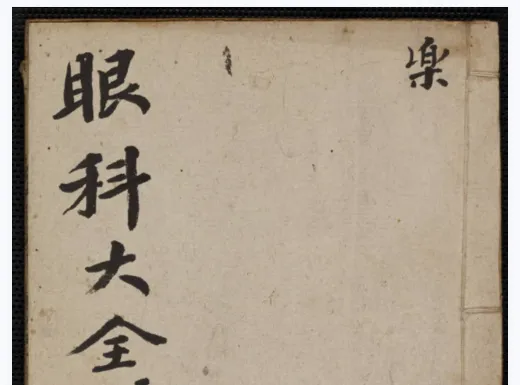 楽
眼科大全